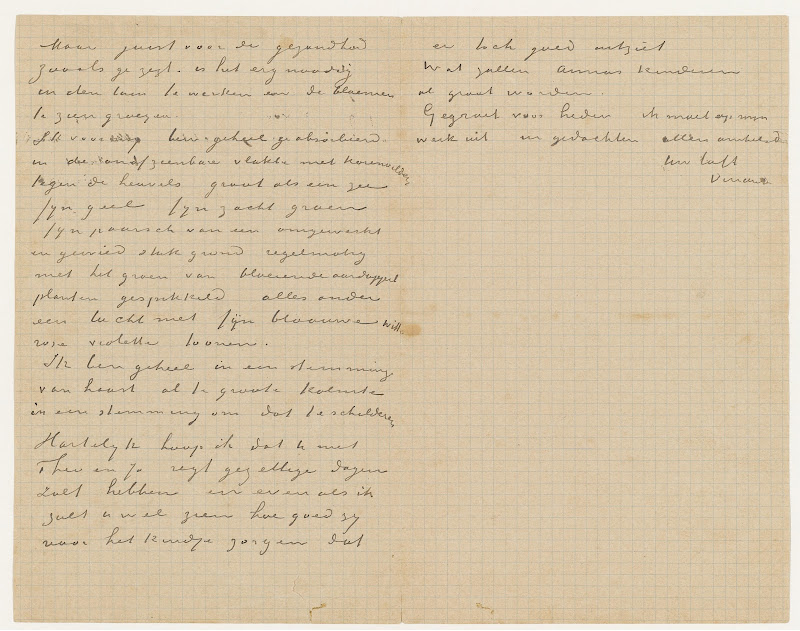 Maar juist voor de gezondheid
zooals ge zegt. is het erg noodig
in den tuin te werken en de bloemen
te zien groeien.
Ik voor ben geheel geabsorbeerd
in die vlakte met korenvelden
tegen de heuvels groot als een zee
fijn geel fijn zacht groen
fijn paarsch van een omgewerkt
en gewied stuk grond regelmatig
met het groen van bloeiende aardappel
planten gespikkeld alles onder
een lucht met fijn blaauwe witte
rose violette toonen.
Ik ben geheel in een stemming
van haast al te groote kalmte
in een stemming om dat te schilderen
Hartelyk hoop ik dat U met
Theo en Jo regt gezellige dagen
zult hebben en even als ik
zult U wel zien hoe goed zy
voor het kindje zorgen dat
er toch goed uitziet
Wat zullen Annas kinderen
al groot worden.
Gegroet voor heden ik moet op mijn
werk uit in gedachten allen omhelzd
Uw liefh
Vincent